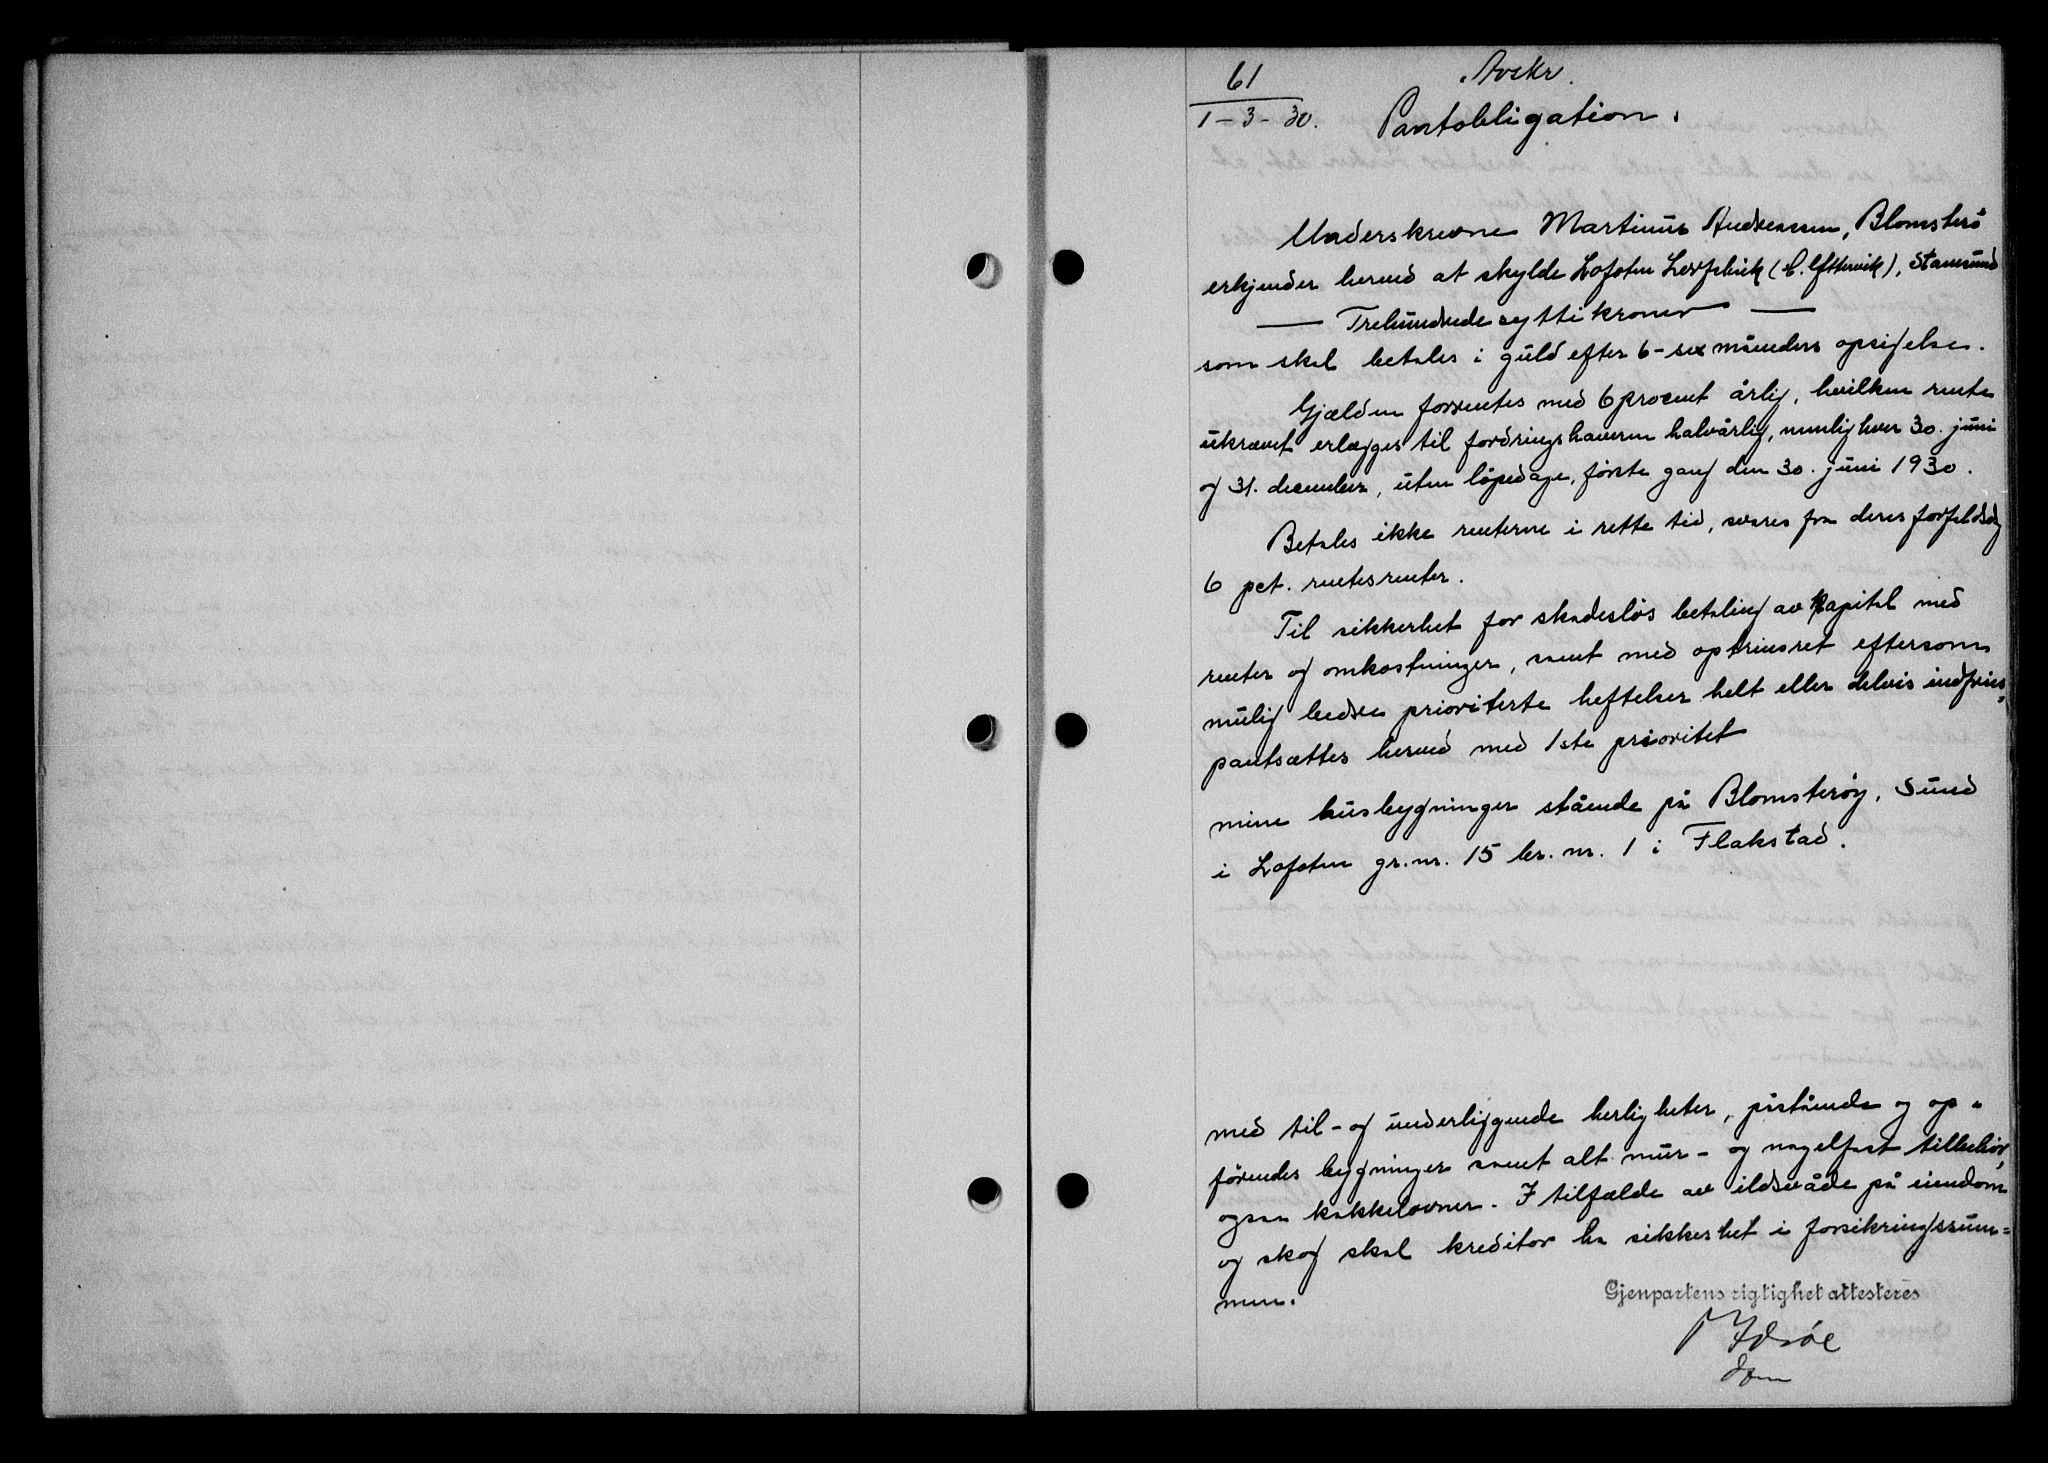 61
1 - 3 - 30.
Avskr.
Pantobligation.
Underskrevne Martinus Andreassen, Blomsterö
erkjender herved at skylde Lofoten (C. Eftervik), Stamsund
— Trehundrede sytti kroner —
som skal betales i guld efter 6 - sex måneders opsigelse.
Gjælden forrentes med 6 procent årlig, hvilken rente
ukrævet erlægges til fordringshaveren halvårlig, nemlig hver 30. juni
og 31. december, uten löpedage, förste gang den 30. juni 1930.
Betales ikke renterne i rette tid, svares fra deres forfaldsdag
6 pct. rentesrenter.
Til sikkerhet for skadeslös betaling av kapital med
renter og omkostninger, samt med optrinsret eftersom
mulig bedre prioriterte heftelser helt eller delvis indfries,
pantsættes herved med 1ste prioritet
mine husbygninger stående på Blomsteröy, Sund
i Lofoten gr. nr. 15 br. nr. 1 i Flakstad.
med til- og underliggende herligheter, påstående og op-
förendes bygninger samt alt mur- og nagelfast tilbehör,
ogsaa kakkelovner. I tilfælde av ildsvåde på eiendom
og skog skal kreditor ha sikkerhet i forsikringssum=
men.
Gjenpartens rigtighet attesteres